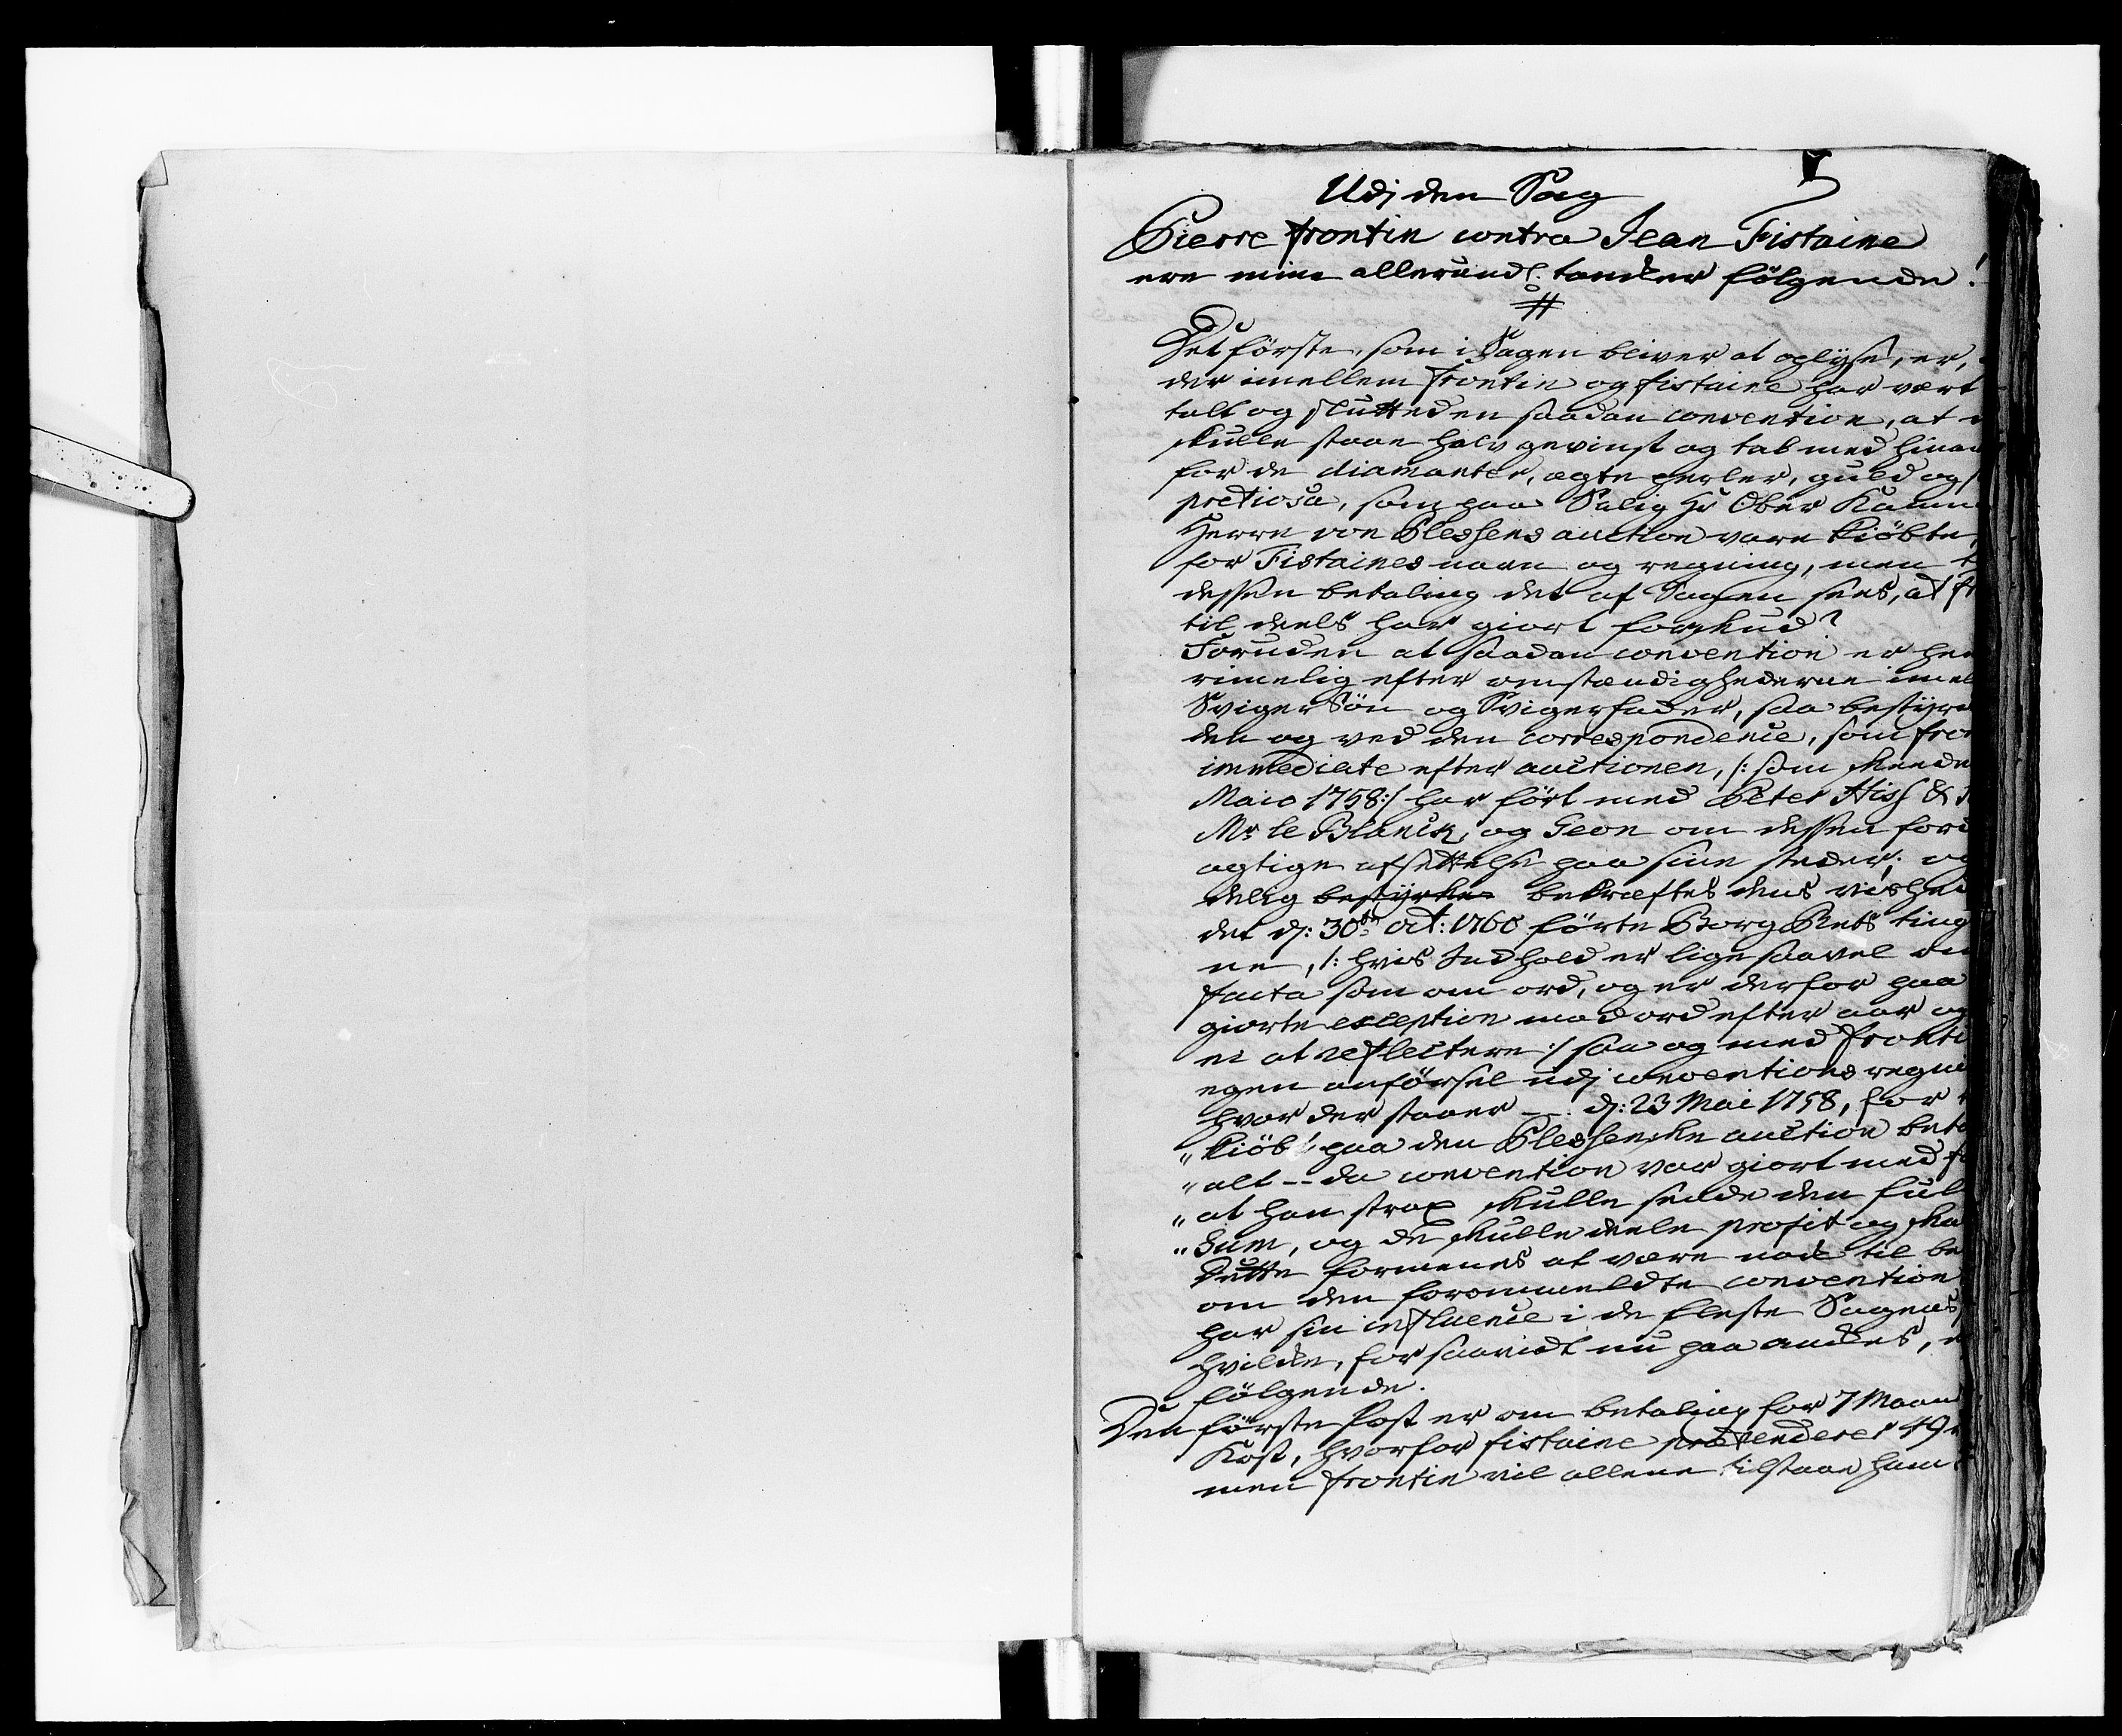 Udj den Sag
Pierre Frontin contra Jean Fistaine
ere mine allerund: tanker følgende!
Det første, som i Sagen bliver at oplyse, er,
der imellem Frontin og Fistaine har vært
talt og slutted en saadan convention, at
skulle staae halv gevinst og tab med hinan
for de diamanter, ægte perler, guld og
pretiosa, som paa Salig Hr Ober Kamm
Herre von Plessens auction vare kiöbte,
for Fistaines navn og regning, men
dessen betaling det af Sagen sees, at
til deels har giort forskud?
Foruden at saadan convention er
rimelig efter omstændighederne imel
SvigerSön og Svigerfader, saa bestyrk
den og ved den correspondence, som Fron
immediate efter auctionen, /: som skeede
Maio 1758:/ har ført med Peter His &
Mr le Blanck, og Geon om dessen ford
agtige afsættelse paa sine steder; og
delig bestyrkes bekræftes dens vished
det d: 30te oct: 1760 førte Borg Rets ting
ne, /: hvis Indhold er lige saavel om
facta som om ord, og er derfor paa
giorte exception mod ord efter aar og
ei at reflectere :/ saa og med Fronti
egen anførsel udj conventions regni
hvor der staaer -- d: 23 Mai 1758, for
"kiöbt paa den Plessenske auction beta
"alt -- da convention var giort med
"at han strax skulle sende den ful
"Sum, og de skulle deele profit og ska
Dette formenes at være nok til be
om den forommeldte convention
har sin influence i de fleste Sagens
hvilke, for saavidt nu paa ankes,
følgende.
Den første Post er om betaling for 7 Maan
Kost, hvorfor Fistaine prætenderer 49
men Frontin vil allene tilstaae ham